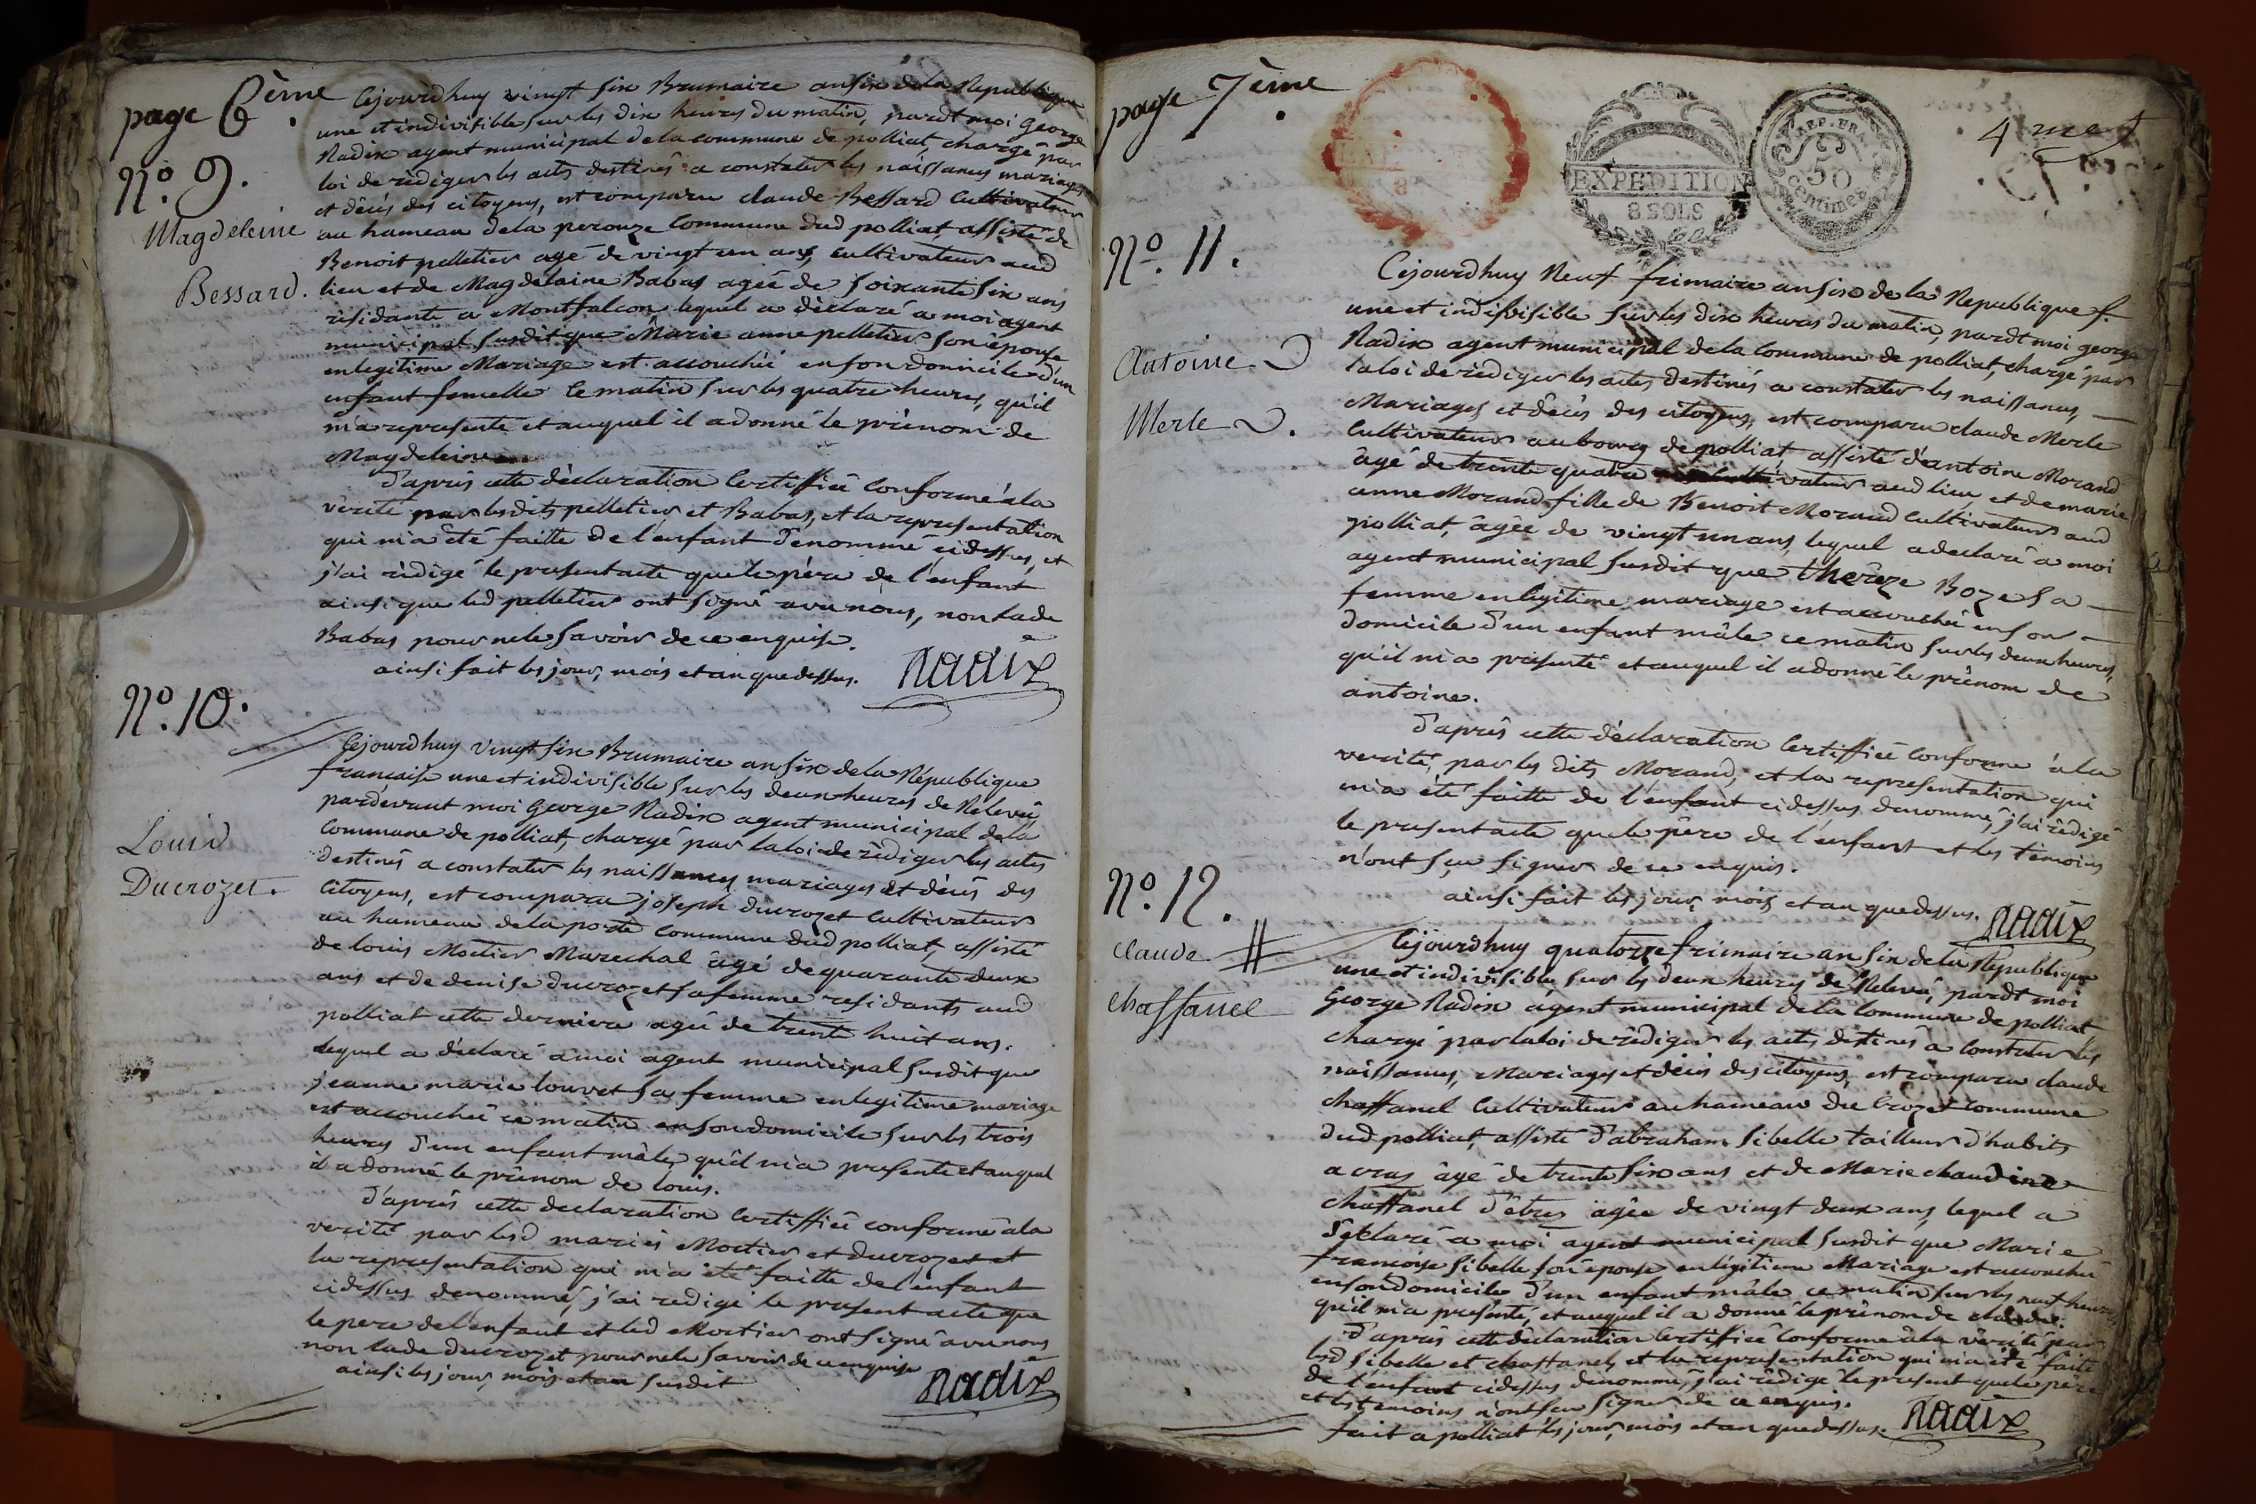 page 6ème
N° 9.
Magdeleine
Bessard.
Cejourdhuy vingt six Brumaire an six de la Republique
une et indivisible sur les dix heures du matin, pardt moi George
Nadix agent municipal de la commune de polliat, chargé par
loi de rédiger les actes destinés a constater les naissances mariages
et décès des citoyens, est comparu claude Bessard Cultivateur
au hameau de la perouze Commune dud polliat, assisté de
Benoit pelletier agé de vingt un ans cultivateur aud
lieu et de Magdelaine Babas agée de soixante six ans
résidante a Montfalcon lequel a déclaré a moi agent
municipal susdit que Marie anne pelletier son épouse
en legitime Mariage est accouchée en son domicile d'un
enfant femelle ce matin sur les quatre heures, qu'il
m'a representé et auquel il a donné le prénom de
Magdeleine
D'après cette déclaration Certiffiée Conforme a la
vérité par lesdits pelletier et Babas, et la representation
qui m'a été faitte de l'enfant dénommé ci dessus, et
j'ai rédigé le present acte que le père de l'enfant
ainsi que led pelletier ont signé avec nous, non lade
Babas pour ne le savoir de ce enquise.
ainsi fait les jour, mois et an que dessus. Nadix
N° 10.
Louis
Ducrozet.
Cejourdhuy vingt six Brumaire an six de la République
francaise une et indivisible sur les deux heures de Relevée
pardevant moi George Nadix agent municipal de la
Commune de polliat, chargé par la loi de rédiger les actes
destinés a constater les naissances mariages et décès des
Citoyens, est comparu joseph ducrozet Cultivateur
au hameau de la poste Commune dud polliat, assisté
de louis Moctier Marechal âgé de quarante deux
ans et de denise ducrozet sa femme residants aud
polliat cette derniere agée de trente huit ans.
lequel a déclaré a moi agent municipal susdit que
jeanne marie louvet sa femme en legitime mariage
est accouchée ce matin en son domicile sur les trois
heures d'un enfant mâle, qu'il m'a presenté et auquel
il a donné le prénom de louis.
D'après cette declaration Certiffiée conforme a la
verité par lesd mariés Moctier et ducrozet et
la representation qui m'a été faitte de l'enfant
cidessus denommé, j'ai rédigé le present acte que
le pere de l'enfant et led Moctier ont signé avec nous
non lade ducrozet pour ne le savoir de ce enquise
ainsi les jour, mois et an susdit Nadix
page 7ème
EXPEDITION
8 SOLS
REP. FRA.
50
centimes
4me f
N° 11.
Antoine
Merle
Cejourdhuy Neuf frimaire an six de la Republique f.
une et indivisible sur les dix heures du matin, pardt moi george
Nadix agent municipal de la Commune de polliat, chargé par
la loi de rédiger les actes destinés a constater les naissances,
Mariages et décès des citoyens, est comparu claude Merle
Cultivateur au bourg de polliat, assisté d'antoine Morand
âgé de trente quatre Cultivateur aud lieu et de marie
anne Morand fille de Benoit Morand Cultivateur aud
polliat, âgée de vingt un ans, lequel a declaré a moi
agent municipal susdit que thereze Boze sa
femme en legitime mariage est accouchée en son
domicile d'un enfant mâle ce matin sur les deux heures,
qu'il m'a presenté et auquel il a donné le prénom de
antoine.
D'après cette déclaration Certiffiée Conforme a la
verité, par les dits Morand, et la representation qui
m'a été faitte de l'enfant cidessus denommé, j'ai rédigé
le present acte que le père de l'enfant et les temoins
n'ont sçu signer de ce enquis.
ainsi fait les jour, mois et an que dessus. Nadix
N° 12.
claude
chaffanel
Cejourdhuy quatorze frimaire an six de la Republique
une et indivisible, sur les deux heures de Relevée, pardt moi
George Nadix agent municipal de la Commune de polliat
chargé par la loi de rédiger les actes destinés a Constater les
naissances, Mariages et décès des citoyens, est comparu claude
chaffanel Cultivateur au hameau du Crozet Commune
dud polliat, assisté d'abraham sibelle tailleur d'habits
a cras âgé de trente six ans et de Marie claudine
chaffanel d'êtres âgée de vingt deux ans, lequel a
déclaré a moi agent municipal susdit que Marie
francoise sibelle son épouse en légitime Mariage est accouchée
en son domicile d'un enfant mâle ce matin sur les neuf heures
qu'il m'a presenté, et auquel il a donné le prénom de claude.
D'après cette déclaration Certiffiée Conforme a la vérité par
lesd sibelle et chaffanel, et la representation qui m'a été faite
de l'enfant cidessus denommé, j'ai rédigé le present que le père
et les temoins n'ont sçu signer de ce enquis.
fait a polliat les jour, mois et an que dessus. Nadix